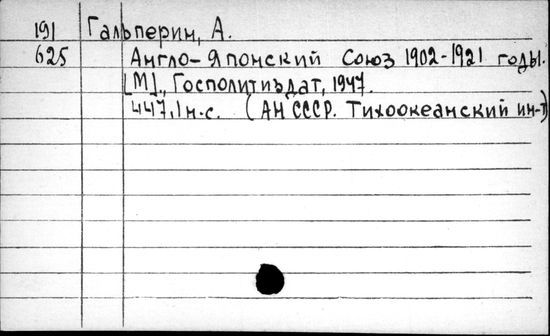 191 Гальперин, А.
625 Англо-Японский Союз 1902-1921 годы.
[М]., Госполитиздат, 1947.
447,1н.с. (АН СССР. Тихоокеанский ин-т)